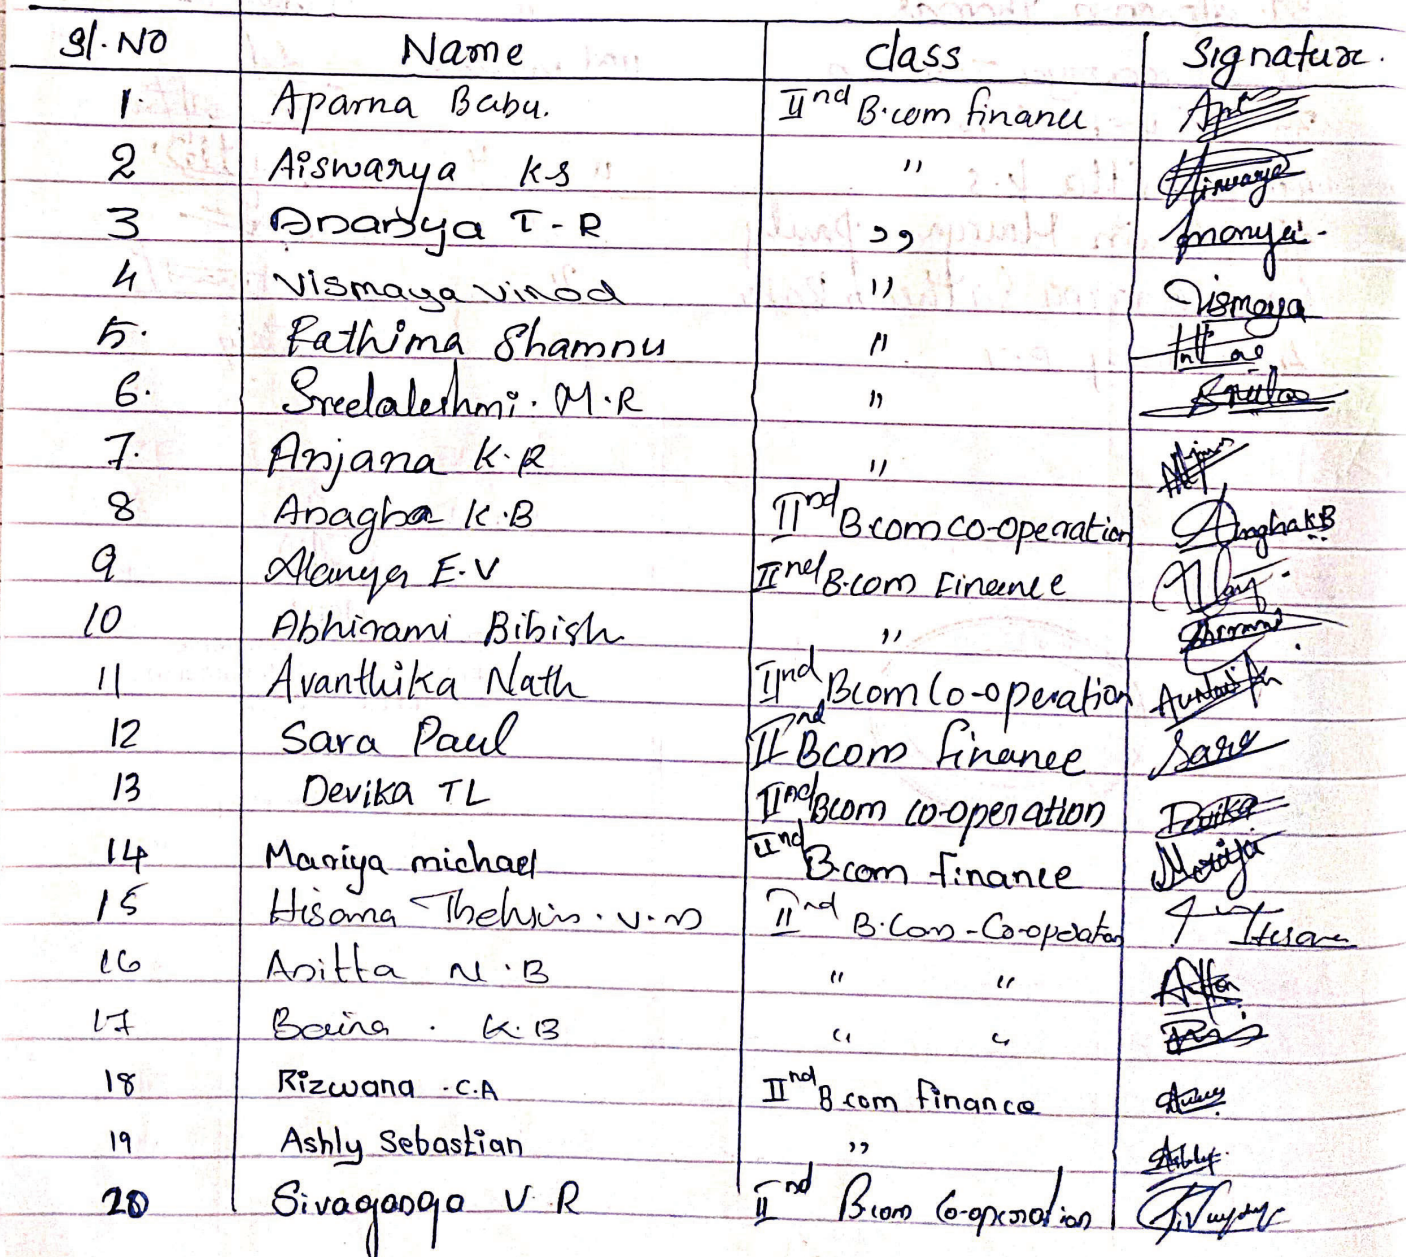 Sl. No Name Class Signature.
1. Aparna Babu. IInd B.com finance
2 Aiswarya K S "
3 Ananya T-R ,, Ananya.
4 Vismaya Vinod " Vismaya
5. Fathima Shamnu "
6. Sreelalekshmi. M.R "
7. Anjana K.R "
8 Anagha K.B IInd B.com co-operation Anagha KB
9 Alanya E.V IInd B.com Finance
10 Abhirami Bibish "
11 Avanthika Nath IInd Bcom Co-operation
12 Sara Paul IInd Bcom finance Sara
13 Devika TL IInd Bcom co-operation Devika
14 Mariya michael IInd B.com finance Mariya
15 Hisana V.M IInd B.Com-Co-operation Hisana
16 Anitta N.B " "
17 K.B " "
18 Rizwana .C.A IInd B.com finance
19 Ashly Sebastian ,, Ashly
20 Sivaganga V R IInd Bcom Co-operation